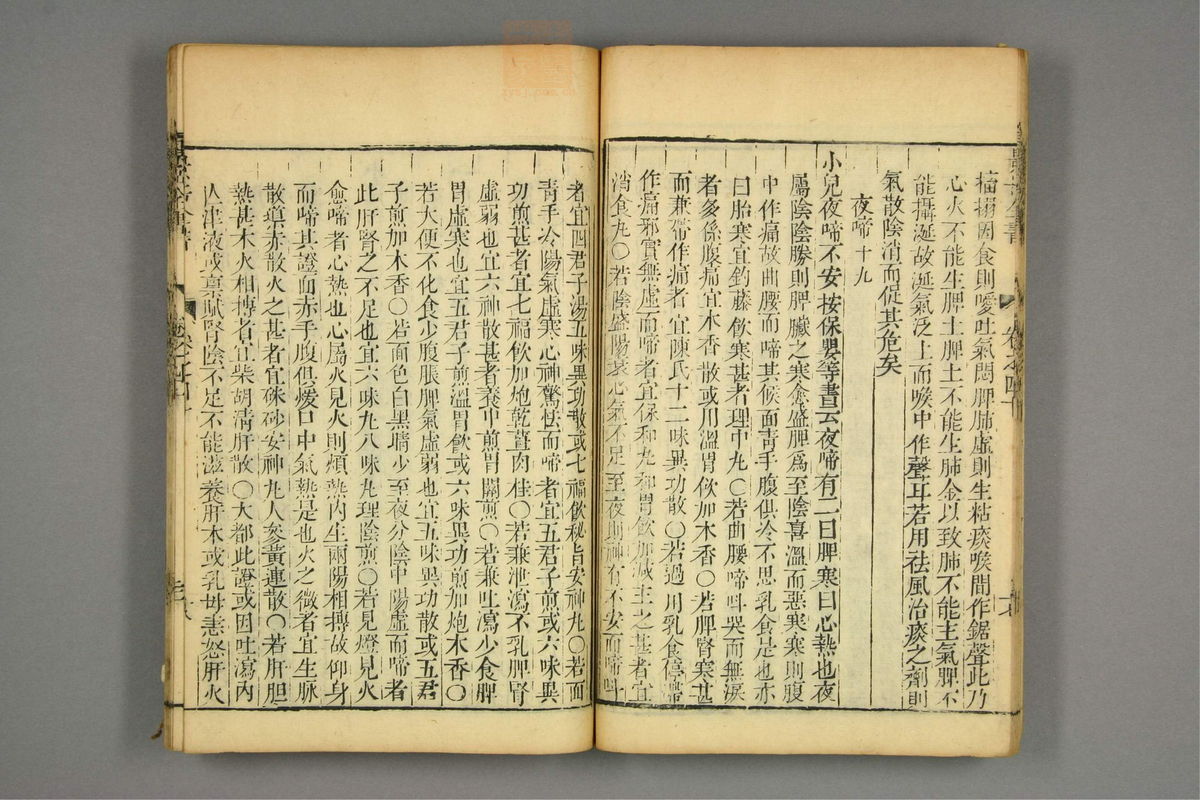 搐搦困食則噯吐氣悶脾肺虛則生粘痰喉間作鋸聲此乃
心火不能生脾土脾土不能生肺金以致肺不能主氣脾不
能攝涎故涎氣泛上而喉中作聲耳若用祛風治痰之劑則
氣散陰消而促其危矣
夜啼十九
小兒夜啼不安按保嬰等書云夜啼有二曰脾寒曰心熱也夜
屬陰陰勝則脾臟之寒愈盛脾為至陰喜溫而惡寒寒則腹
中作痛故曲腰而啼其候面青手腹俱冷不思乳食是也亦
曰胎寒宜鈎藤飲寒甚者理中九〇若曲腰啼呌哭而無淚
者多係腹痛宜木香散或用溫胃飲加木香〇若脾腎寒甚
而兼帶作痛者宜陳氏十二味異功散〇若過用乳食停滯
作痛邪實無虛而啼者宜保和九和胃飲加減主之甚者宜
消食九〇若陰盛陽衰心氣不足至夜則神有不安而啼呌
者宜四君子湯五味異功散或七福飲秘旨安神九〇若面
青手冷陽氣虛寒心神驚怯而啼者宜五君子煎或六味異
功煎甚者宜七福飲加炮乾薑肉桂〇若兼泄瀉不乳脾腎
虛弱也宜六神散甚者養中煎胃關煎〇若兼吐瀉少食脾
胃虛寒也宜五君子煎溫胃飲或六味異功煎加炮木香〇
若大便不化食少腹脹脾氣虛弱也宜五味異功散或五君
子煎加木香〇若面色白黑睛少至夜分陰中陽虛而啼者
此肝腎之不足也宜六味九八味九理陰煎〇若見燈見火
愈啼者心熱也心屬火見火則煩熱內生兩陽相搏故仰身
而啼其證面赤手腹俱煖口中氣熱是也火之微者宜生脉
散導赤散火之甚者宜硃砂安神九人參黃連散〇若肝胆
熱甚木火相搏者宜柴胡清肝散〇大都此證或因吐瀉內
亾津液或稟賦腎陰不足不能滋養肝木或乳母恚怒肝火